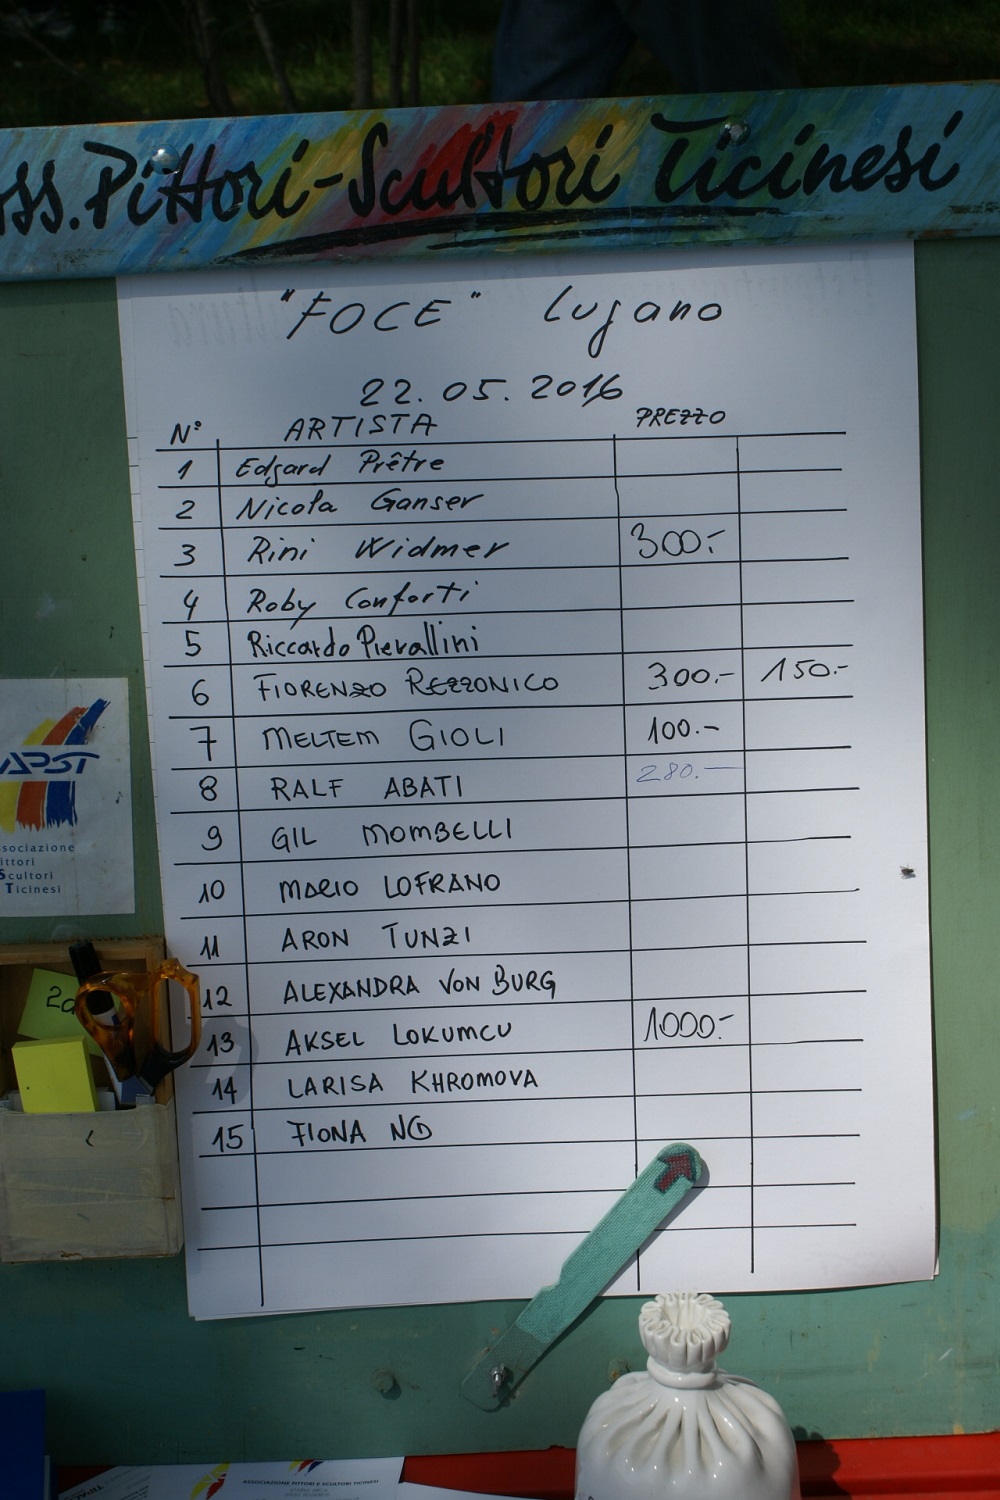 ss. Pittori-Scultori Ticinesi
"FOCE" Lugano
22.05.2016
N° ARTISTA PREZZO
1 Edgard Prêtre
2 Nicola Ganser
3 Rini Widmer 300.-
4 Roby Conforti
5 Riccardo Pierallini
6 FIORENZO REZZONICO 300.- 150.-
7 MELTEM GIOLI 100.-
8 RALF ABATI 280.-
9 GIL MOMBELLI
10 MARIO LOFRANO
11 ARON TUNZI
12 ALEXANDRA VON BURG
13 AKSEL LOKUMCU 1000.-
14 LARISA KHROMOVA
15 FIONA NG
APST
ssociazione
ittori
Scultori
Ticinesi
ASSOCIAZIONE PITTORI E SCULTORI TICINESI